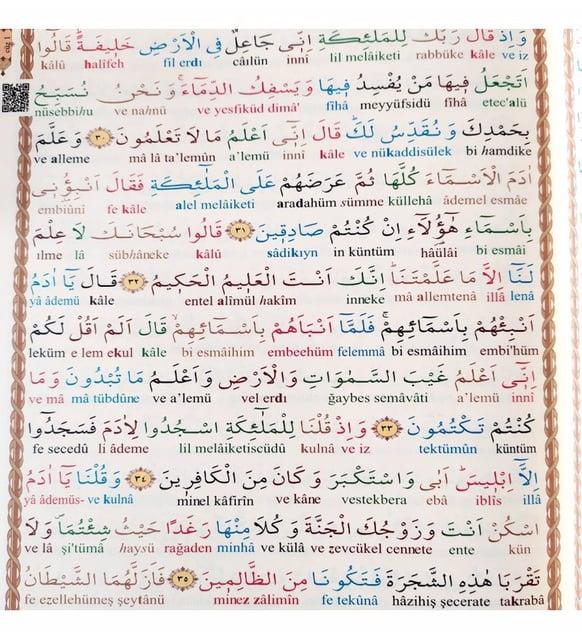 وَاِذْ قَالَ رَبُّكَ لِلْمَلٰٓئِكَةِ اِنّ۪ي جَاعِلٌ فِي الْاَرْضِ خَل۪يفَةًۜ قَالُٓوا
ve iz kâle rabbüke lil melâiketi innî câılün fil erdı halîfeh kâlû
cüz 1
اَتَجْعَلُ ف۪يهَا مَنْ يُفْسِدُ ف۪يهَا وَيَسْفِكُ الدِّمَٓاءَۚ وَنَحْنُ نُسَبِّحُ
etec'alü fîhâ meyyüfsidü fîhâ ve yesfiküd dimâ' ve nahnü nüsebbihu
بِحَمْدِكَ وَنُقَدِّسُ لَكَۜ قَالَ اِنّ۪ٓي اَعْلَمُ مَا لَا تَعْلَمُونَ ﴿٣٠﴾ وَعَلَّمَ
bi hamdike ve nükaddisülek kâle innî a'lemü mâ lâ ta'lemûn ve alleme
اٰدَمَ الْاَسْمَٓاءَ كُلَّهَا ثُمَّ عَرَضَهُمْ عَلَى الْمَلٰٓئِكَةِ فَقَالَ اَنْبِؤُ۫ن۪ي
âdemel esmâe küllehâ sümme aradahüm alel melâiketi fe kâle embiûnî
بِاَسْمَٓاءِ هٰٓؤُ۬لَٓاءِ اِنْ كُنْتُمْ صَادِق۪ينَ ﴿٣١﴾ قَالُوا سُبْحَانَكَ لَا عِلْمَ
bi esmâi hâülâi in küntüm sâdikıyn kâlû sübhâneke lâ ılme
لَنَٓا اِلَّا مَا عَلَّمْتَنَاۜ اِنَّكَ اَنْتَ الْعَل۪يمُ الْحَك۪يمُ ﴿٣٢﴾ قَالَ يَٓا اٰدَمُ
lenâ illâ mâ allemtenâ inneke entel alîmül hakîm kâle yâ âdemü
اَنْبِئْهُمْ بِاَسْمَٓائِهِمْۚ فَلَمَّٓا اَنْبَاَهُمْ بِاَسْمَٓائِهِمْۙ قَالَ اَلَمْ اَقُلْ لَكُمْ
embi'hüm bi esmâihim felemmâ embeehüm bi esmâihim kâle e lem ekul leküm
اِنّ۪ٓي اَعْلَمُ غَيْبَ السَّمٰوَاتِ وَالْاَرْضِ وَاَعْلَمُ مَا تُبْدُونَ وَمَا
innî a'lemü ğaybes semâvâti vel erdı ve a'lemü mâ tübdûne ve mâ
كُنْتُمْ تَكْتُمُونَ ﴿٣٣﴾ وَاِذْ قُلْنَا لِلْمَلٰٓئِكَةِ اسْجُدُوا لِاٰدَمَ فَسَجَدُٓوا
küntüm tektümûn ve iz kulnâ lil melâiketiscüdû li âdeme fe secedû
اِلَّٓا اِبْل۪يسَۜ اَبٰى وَاسْتَكْبَرَ وَكَانَ مِنَ الْكَافِر۪ينَ ﴿٣٤﴾ وَقُلْنَا يَٓا اٰدَمُ
illâ iblîs ebâ vestekbera ve kâne minel kâfirîn ve kulnâ yâ âdemüs-
اسْكُنْ اَنْتَ وَزَوْجُكَ الْجَنَّةَ وَكُلَا مِنْهَا رَغَدًا حَيْثُ شِئْتُمَاۖ وَلَا
kün ente ve zevcükel cennete ve külâ minhâ rağaden haysü şi'tümâ ve lâ
تَقْرَبَا هٰذِهِ الشَّجَرَةَ فَتَكُونَا مِنَ الظَّالِم۪ينَ ﴿٣٥﴾ فَاَزَلَّهُمَا الشَّيْطَانُ
takrabâ hâzihiş şecerate fe tekûnâ minez zâlimîn fe ezellehümeş şeytânü